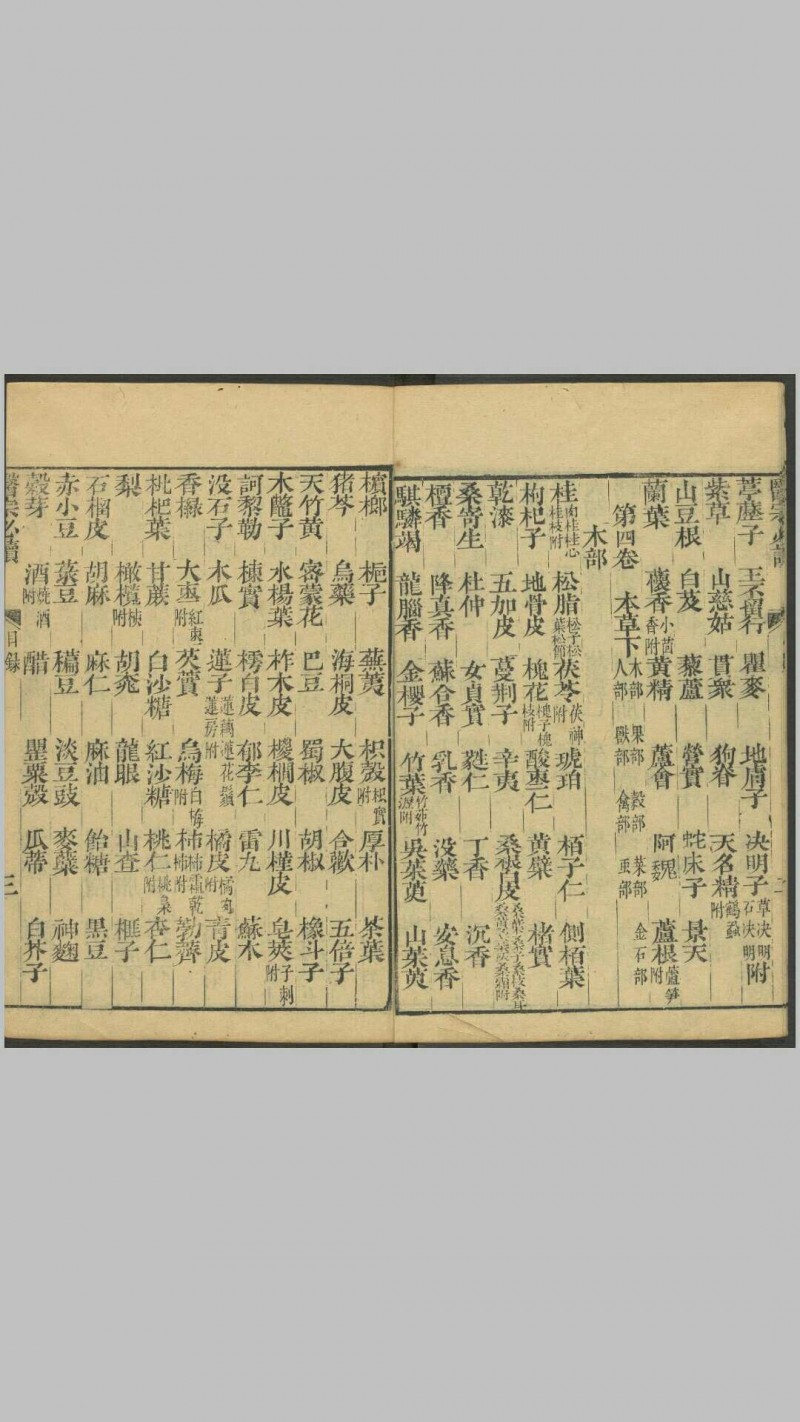 葶藶子 王不留行 瞿麥 地膚子 决明子草决明石决明附
紫草 山慈姑 貫衆 狗脊 天名精鶴蝨附
山豆根 白芨 藜蘆 營實 蛇床子 景天
蘭葉 蘹香小茴香附 黃精 蘆會 阿魏 蘆根蘆笋附
第四卷 本草下木部 果部 穀部 菜部 金石部 人部 獸部 禽部 虫部
木部
桂肉桂桂心桂枝附 松脂松子松葉松節 茯苓茯神附 琥珀 栢子仁 側栢葉
枸杞子 地骨皮 槐花槐子槐枝附 酸棗仁 黃蘗 楮實
乾漆 五加皮 蔓荆子 辛夷 桑根白皮
桑寄生 杜仲 女貞實 蕤仁 丁香 沉香
檀香 降真香 蘇合香 乳香 没藥 安息香
騏驎竭 龍腦香 金櫻子 竹葉竹茹竹瀝附 吳茱萸 山茱萸
檳榔 梔子 蕪荑 枳殼枳實附 厚朴 茶葉
猪苓 烏藥 海桐皮 大腹皮 合歡 五倍子
天竹黃 密蒙花 巴豆 蜀椒 胡椒 橡斗子
木鼈子 水楊葉 柞木皮 椶櫚皮 川槿皮 皂莢子刺附
訶黎勒 楝實 樗白皮 郁李仁 雷丸 蘇木
没石子 木瓜 蓮子蓮藕蓮花蓮鬚蓮房附 橘皮附 青皮
香櫞 大棗紅棗附 芡實 烏梅白梅附 柿柿霜乾柿附 荸薺
枇杷葉 甘蔗 白沙糖 紅沙糖 桃仁桃梟附 杏仁
梨 橄欖核附 胡桃 龍眼 山查 榧子
石榴皮 胡麻 麻仁 麻油 飴糖 黑豆
赤小豆 菉豆 穭豆 淡豆豉 麥蘖 神麯
穀芽 酒燒酒附 醋 罌粟殼 瓜蒂 白芥子
醫宗必讀 目録 三